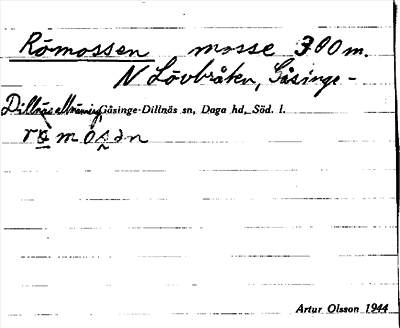 Römossen mosse 300 m.
N Lövbråten, Gåsinge-
Dillnäs Gåsinge-Dillnäs sn, Daga hd, Söd. l.
Artur Olsson 1944